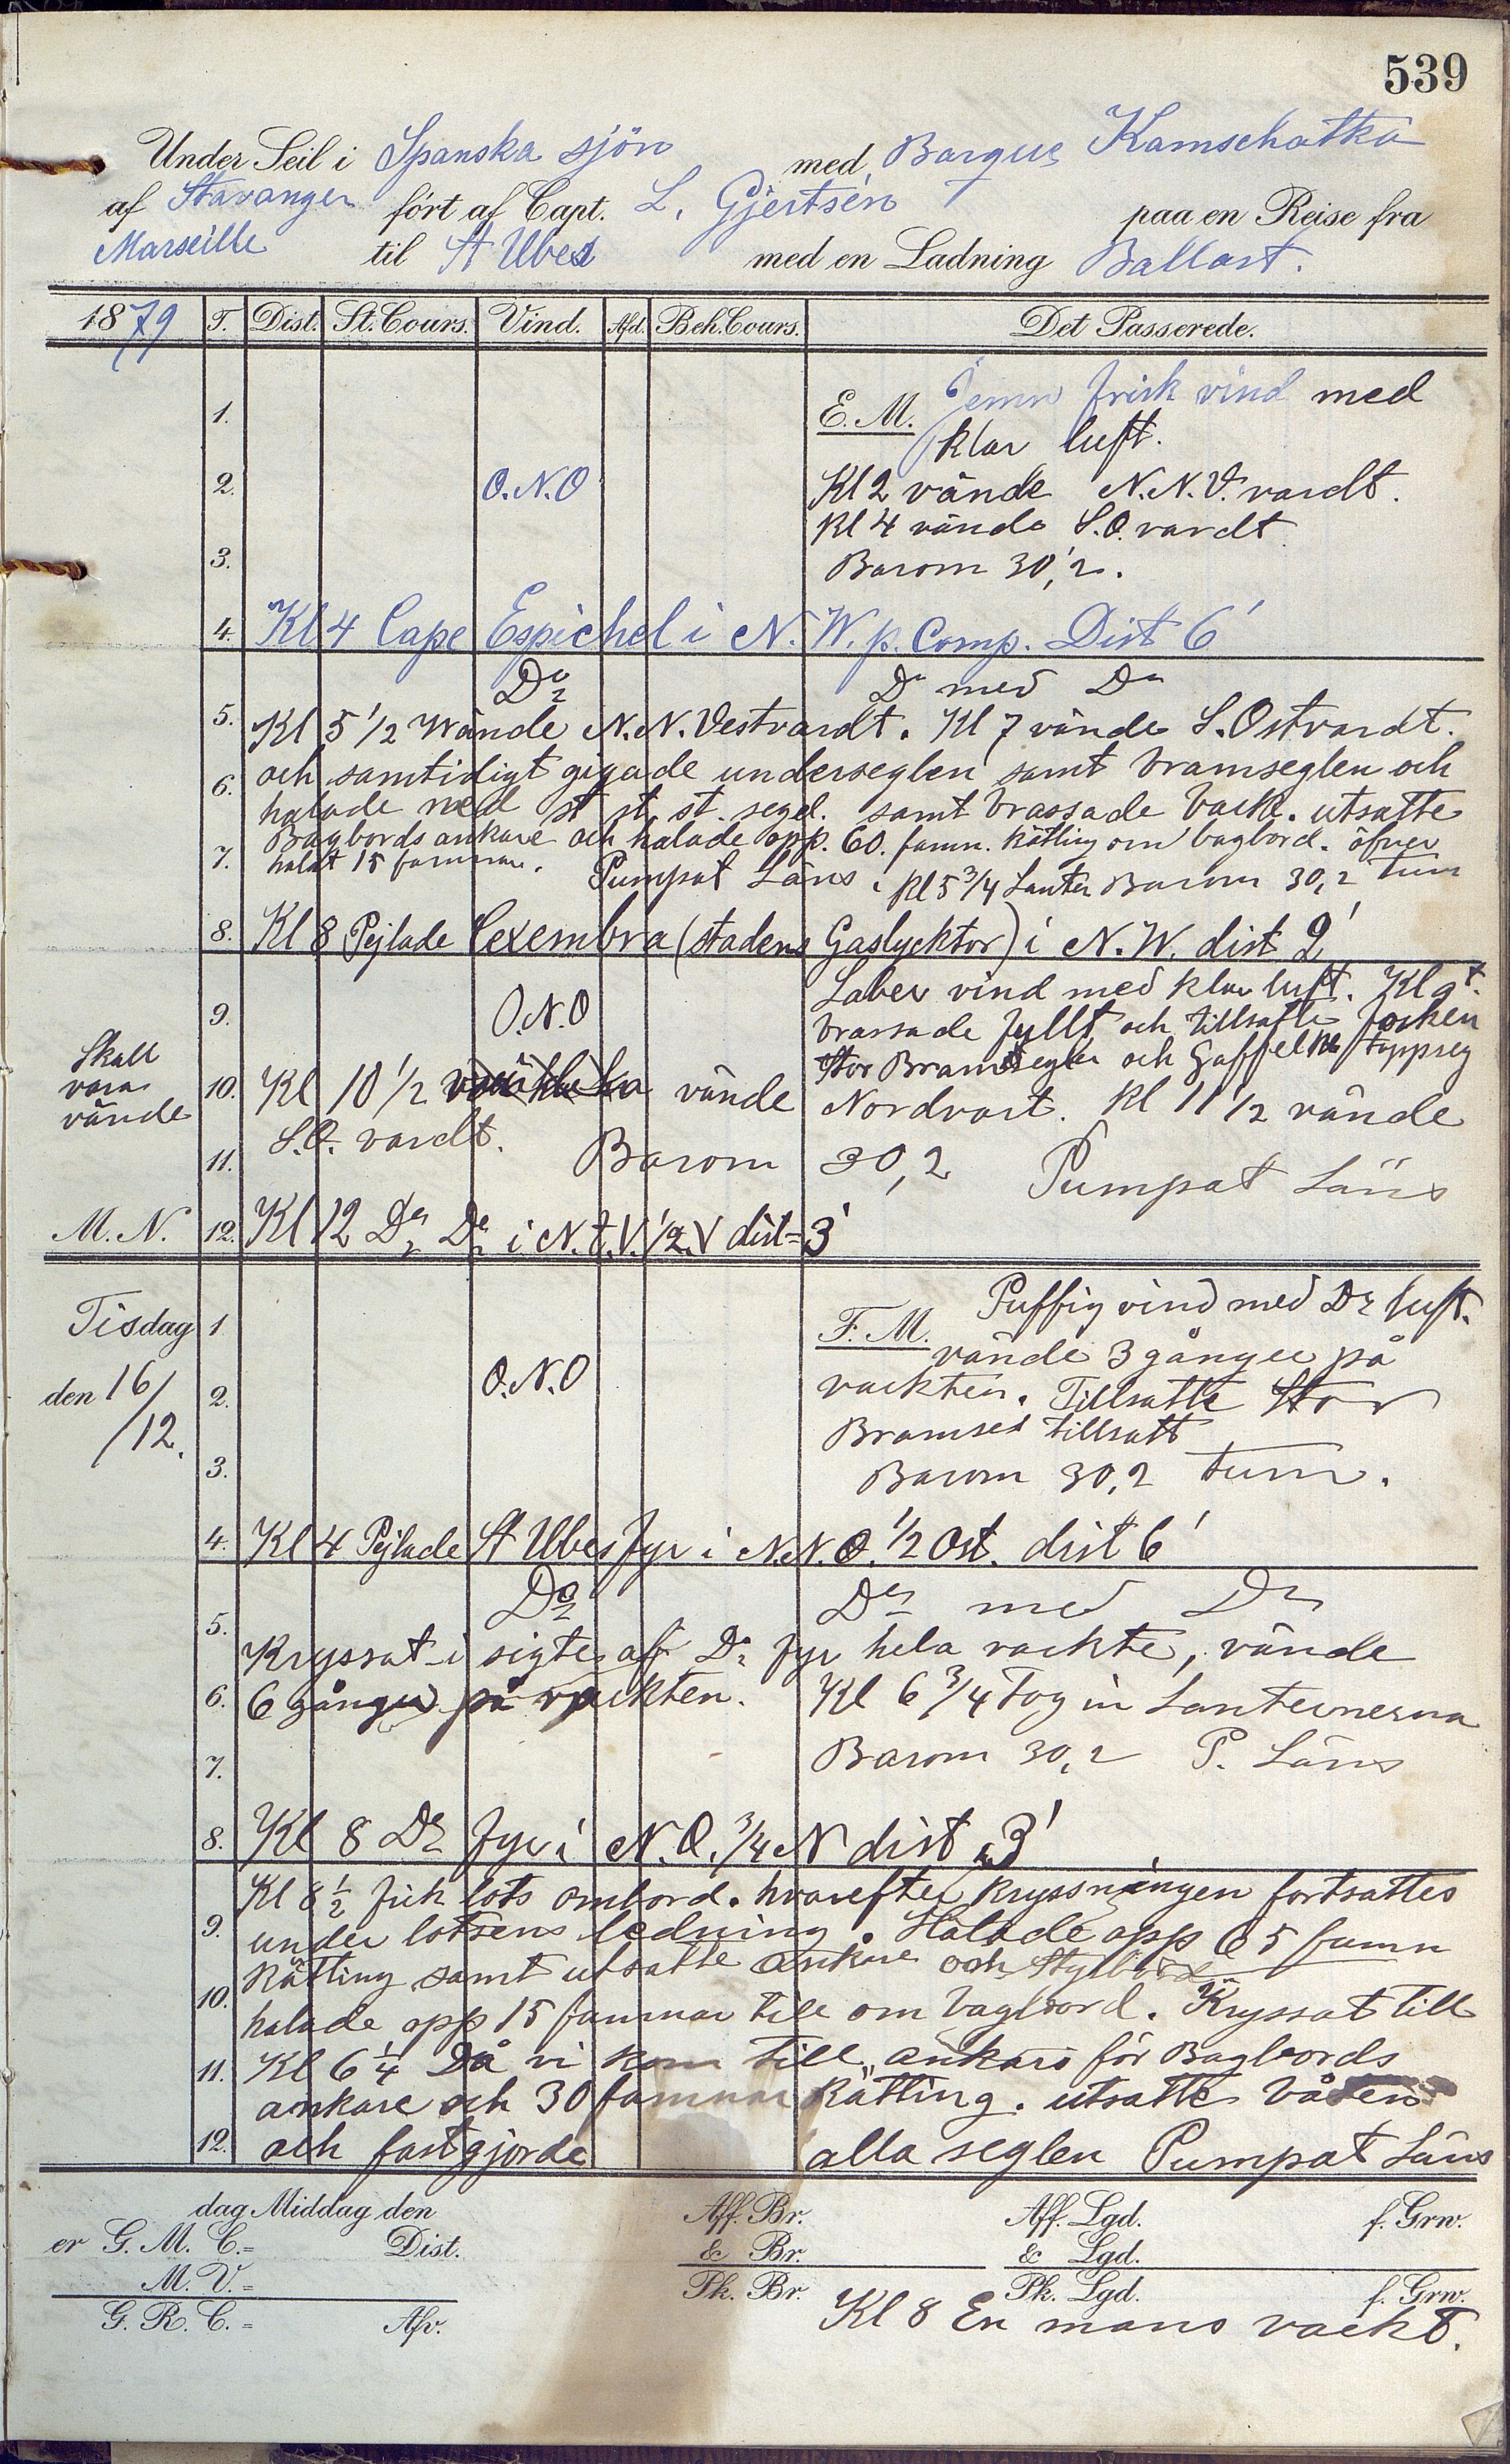 539
Under Seil i Spanska sjön med Barque Kamschatka
af Stavanger fört af Capt. L. Gjertsen paa en Reise fra
Marseille til St Ubes med en Ladning Ballast.
1879 T. Dist. St. Cours. Vind. Afd. Beh. Cours. Det Passerede.
E. M. Jemn frisk vind med
1.
klar luft.
2. O.N.O Kl 2 vände N.N.V. vardt.
Kl 4 vände S.O. vardt
3. Barom 30,2.
4. Kl 4 Cape Espichel i N.W. p. Comp. Dist 6'
Do Do med Do
5. Kl 5 1/2 Wände N.N. Vestvardt. Kl 7 vände S. Ostvardt.
6. och samtidigt gigade underseglen samt bramseglen och
halade ned st st. st. segel. samt brassade back. utsatte
Bagbords ankare och halade opp. 60. famn. kätting om bagbord. öfver
7. halat 15 famnar. Pumpat Läns. Kl 5 3/4 Lanter Barom 30,2 tum
8. Kl 8 Pejlade Cexembra (stadens Gaslycktor) i N.W. dist 2'
Laber vind med klar luft. Kl 9 t.
9. O.N.O brassade fyllt och tillsatte focken
Stor Bramsegle och Gaffel toppseg
Skall
vara
vände
10. Kl 10 1/2 vände Nordvart. Kl 11 1/2 vände
S.O. vardt.
11. Barom 30,2 Pumpat Läns
M. N. 12. Kl 12 Do Do i N.t.V. 1/2 V dist = 3'
Puffig vind med Do luft.
Tisdag 1 F. M.
vände 3 gånger på
den 16/12. 2. O.N.O vackten. Tillsatte Stor
Bramsel tillsatt
3. Barom 30,2 tum.
4. Kl 4 Pejlade St Ubes fyr i N.N.O. 1/2 Ost. dist 6'
Do Do med Do
5. Kryssat i sigte af Do fyr hela vackte, vände
6. 6 gånger på vackten. Kl 6 3/4 Tog in Lanternerna
7. Barom 30,2 P. Läns
8. Kl 8 Do fyr i N.O. 3/4 N dist 3'
Kl 8 1/2 fick lots ombord. hvarefter kryssningen fortsattes
9. under lotsens ledning. Halade opp 65 famn
kätting samt utsatte ankare och Styrbord
10. halade opp 15 famnar till om bagbord. Kryssat till
11. Kl 6 1/4 Då vi kom till ankars för Bagbords
ankare och 30 famnar kätting. utsatte båten
12. och fastgjorde alla seglen Pumpat Läns
dag Middag den Aff. Br. Aff. Lgd. f. Grw.
er G. M. C. = Dist. & Br. & Lgd.
M. V. = Pk. Br. Pk. Lgd. f. Grw.
G. R. C. = Afv. Kl 8 En mans vackt.